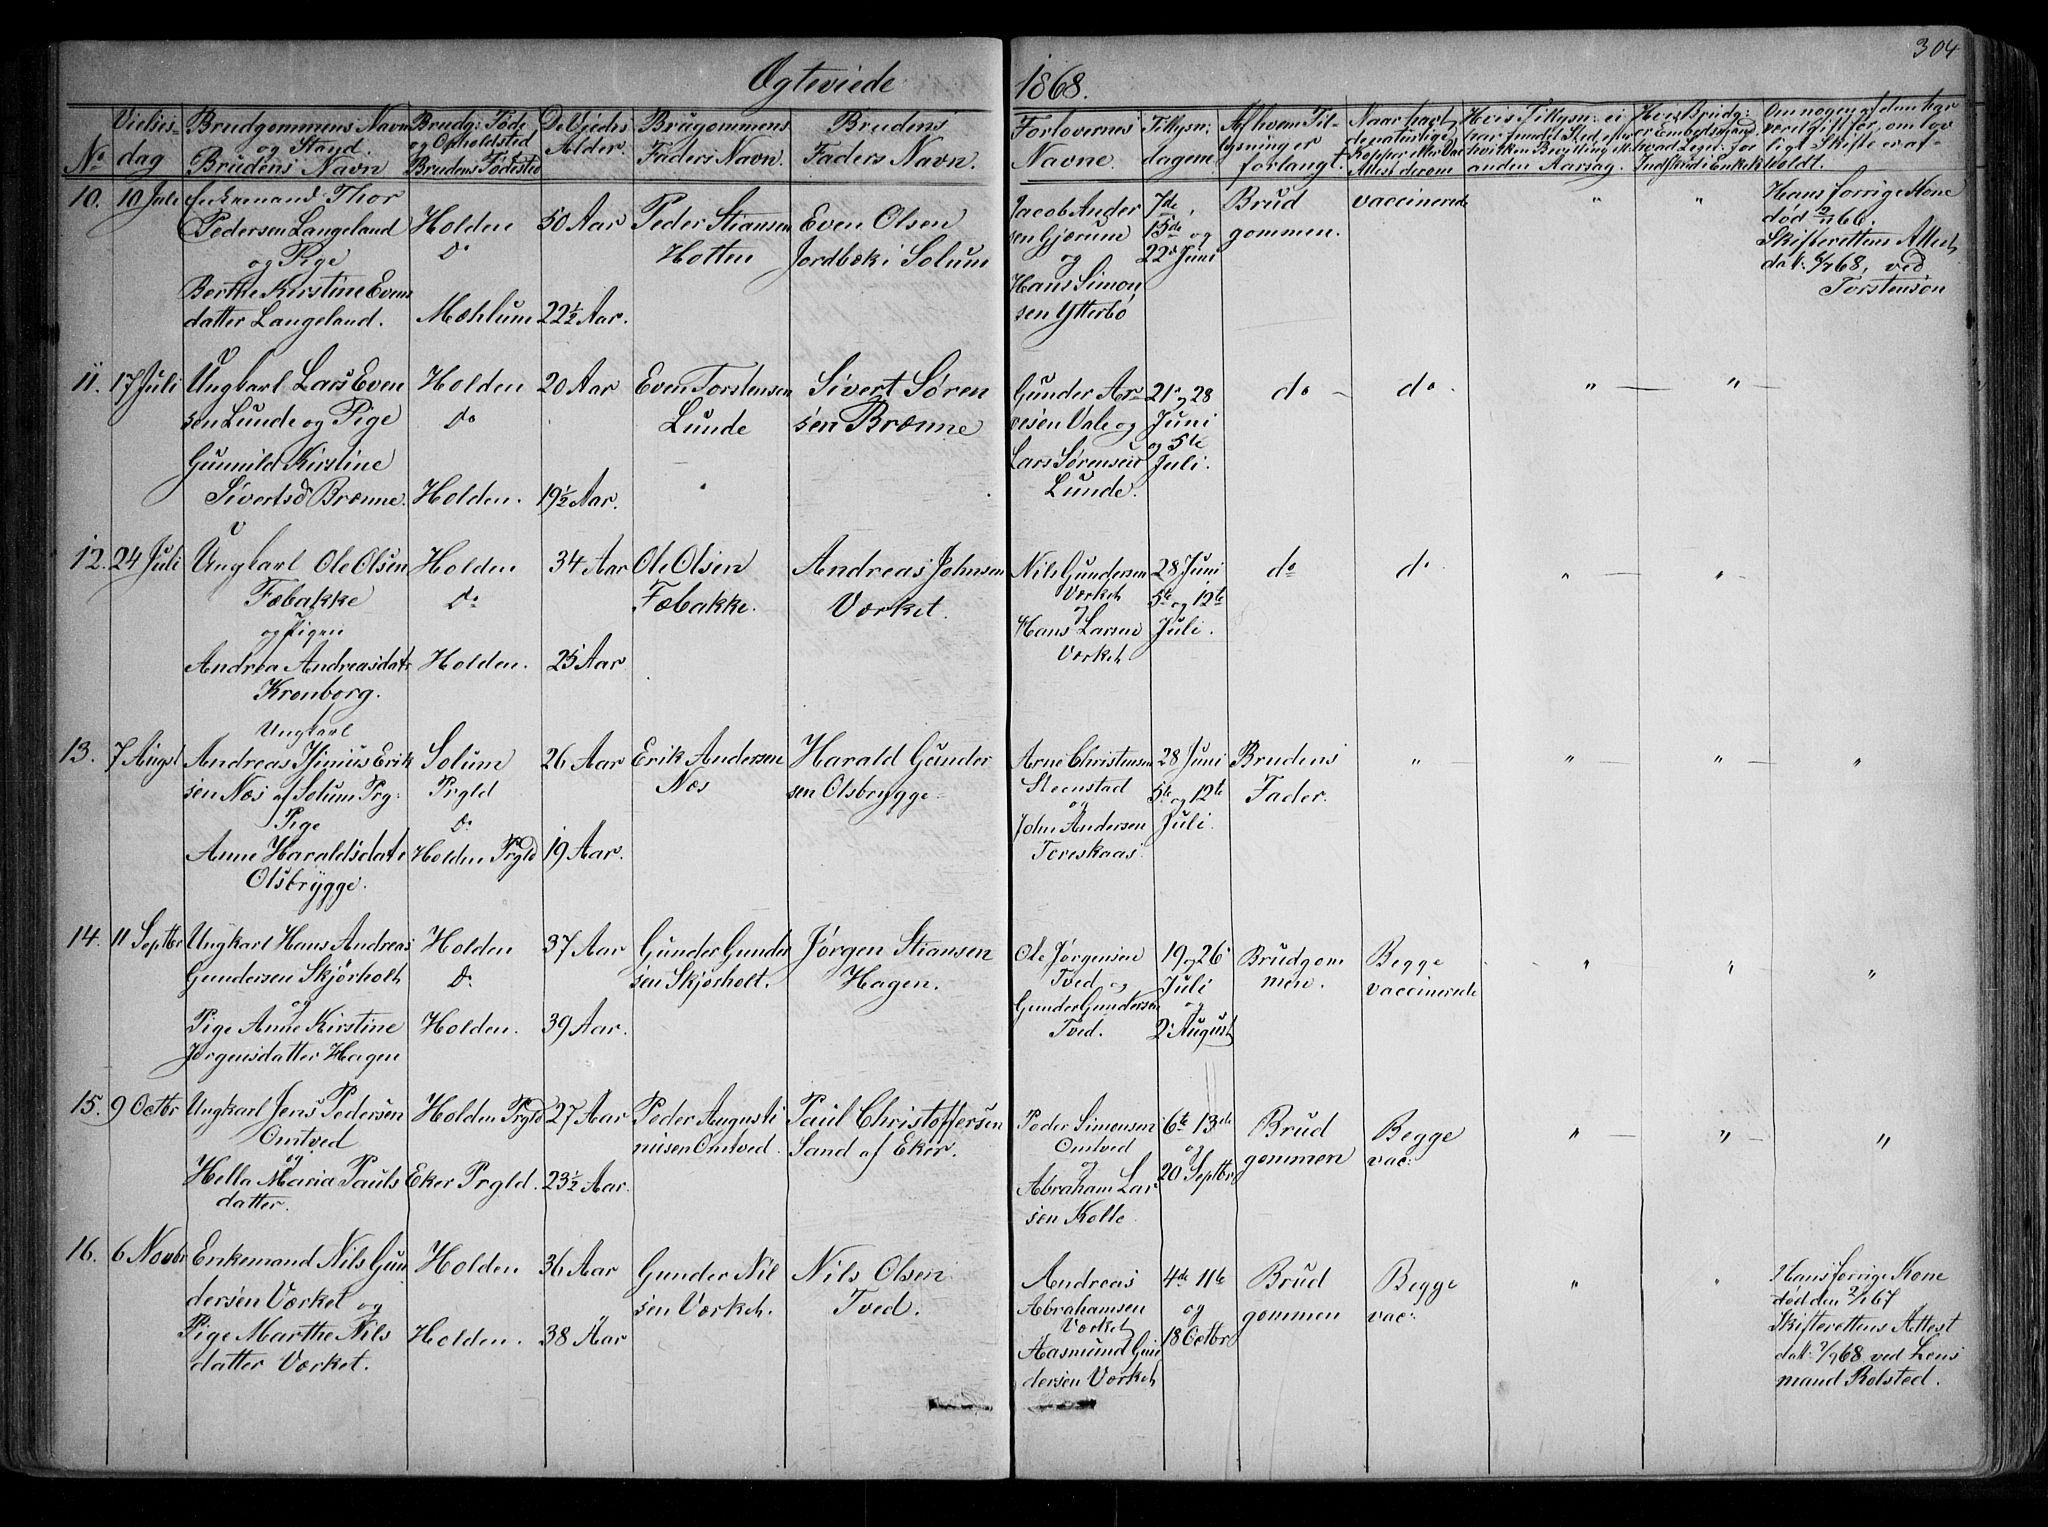 304
Ægteviede 1868.
No
Vielses-
dag
Brudgommens Navn
og Stand.
Brudens Navn
Brudg: Føde
og Opholdsted
Brudens Fødested
De Viedes
Alder.
Brudgommens
Faders Navn.
Brudens
Faders Navn.
Forlovernes
Navne.
Tillysn:
dagene.
Af hvem Til-
lysning er
forlangt.
Naar havt
de naturlige
Kopper eller Vac
Attest derom
Hvis Tillysn: ei
har fundet Sted, efter
hvilken Bevilling ell.
anden Aarsag.
Hvis Brudg:
er Embedsmand
hvad Leget. for
Indskud i Enkek
Om nogen af dem har
været gift før, om lov
ligt Skifte er af-
holdt.
10. 10 Juli
Enkemand Thor
Pedersen Langeland
og Pige
Berthe Kirstine Evens
datter Langeland.
Holden
Do
Mæhlum
50 Aar
22½ Aar.
Peder Stiansen
Hotten
Even Olsen
Jordbæk i Solum
Jacob Ander
sen Gjærum
og
Hans Simon
sen Ytterbø
7de,
15de og
22de Juni
Brud
gommen.
vaccinerede
" "
Hans forrige Kone
død 2/11 66.
Skifterettens Attest
dat: 6/7 68, ved
Torstenson
11. 17 Juli
Ungkarl Lars Even
sen Lunde og Pige
Gunnild Kirstine
Sivertsd Brænne.
Holden
Do
Holden.
20 Aar
19½ Aar.
Even Torstensen
Lunde
Sivert Søren
sen Brænne
Gunder Ar
vesen Vale og
Lars Sørensen
Lunde.
21de og 28
Juni
og 5te
Juli.
do
do
" — " —
12. 24 Juli
Ungkarl Ole Olsen
Fæbakke
og Pigen
Andrea Andreasdatr
Kronborg.
Holden
Do
Holden.
34 Aar
25 Aar
Ole Olsen
Fæbakke.
Andreas Johnsen
Værket.
Nils Gundersen
Værket
og
Hans Larsen
Værket
28 Juni
5te og 12te
Juli.
do
do
" — " —
13. 7 August
Ungkarl
Andreas Hinius Erik
sen Næs af Solum Prg:
Pige
Anne Haraldsdatr
Olsbrygge.
Solum
Prgld
Do
Holden Prgld
26 Aar
19 Aar.
Erik Andersen
Næs
Harald Gunder
sen Olsbrygge
Arne Christensen
Steenstad
og
John Andersen
Toreskaas.
28 Juni
5te og 12te
Juli.
Brudens
Fader.
" — " — " — "
14. 11 Septbr
Ungkarl Hans Andreas
Gundersen Skjørholt
og
Pige Anne Kirstine
Jørgensdatter Hagen
Holden
Do
Holden.
37 Aar
39 Aar.
Gunder Gunder
sen Skjørholt.
Jørgen Stiansen
Hagen.
Ole Jørgensen
Tved og
Gunder Gundersen
Tved.
19 og 26
Juli
og
2 August
Brudgom
men.
Begge
vaccinerede
" " "
15. 9 Octbr
Ungkarl Jens Pedersen
Omtved
og
Hella Maria Pauls
datter.
Holden Prgld
Eker Prgld.
27 Aar
23½ Aar.
Peder Augusti
nusen Omtved.
Paul Christoffersen
Sand af Eker.
Peder Simonsen
Omtved
og
Abraham Lar
sen Kolle.
6te 13de
og
20 Septbr
Brud
gommen
Begge
vac:
" — " — "
16. 6 Novbr
Enkemand Nils Gun
dersen Værket og
Pige Marthe Nils
datter Værket.
Holden
Holden.
36 Aar
38 Aar
Gunder Nil
sen Værket.
Nils Olsen
Tved.
Andreas
Abrahamsen
Værket
Aasmund Gun
dersen Værket
4de 11te
og
18 Octbr
Brud
gommen
Begge
vac:
" "
Hans forrige Kone
død den 2/1 67
Skifterettens Attest
dat: 7/9 68 ved Lens
mand Rolsted.